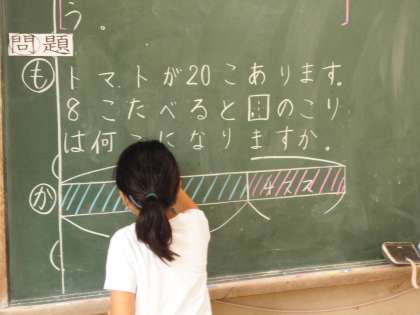 う。
問題
も トマトが20こあります。
8こたべると のこり
は何こになりますか。
か